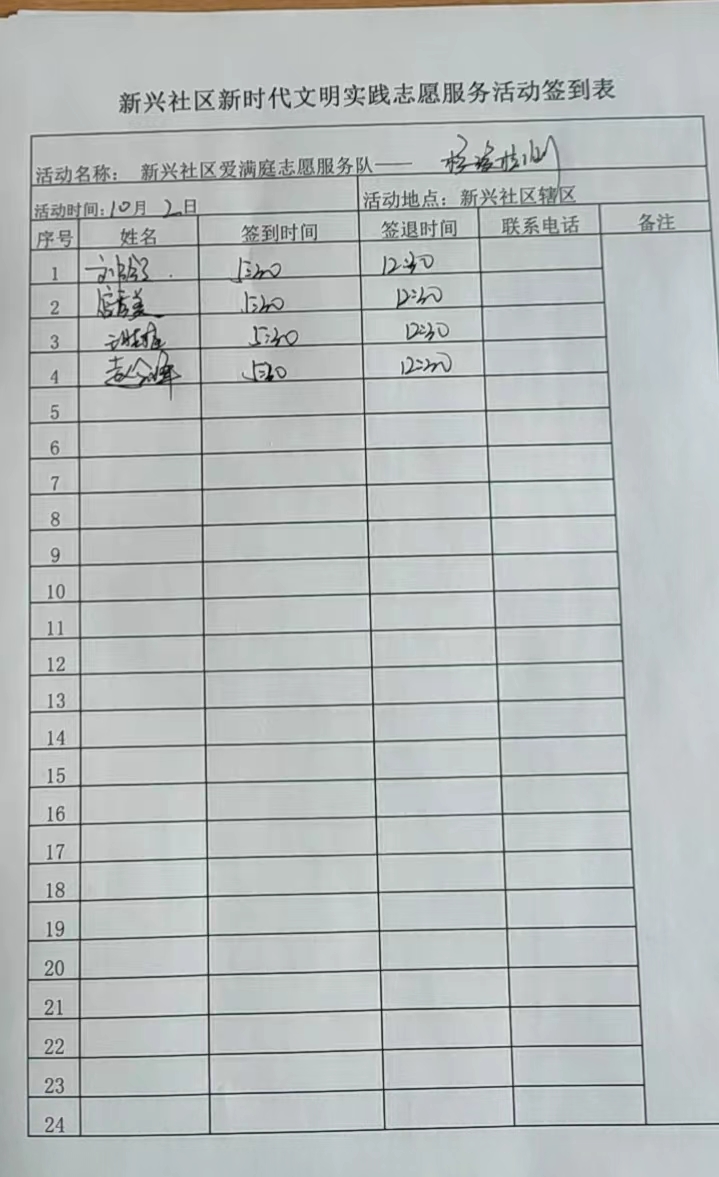 新兴社区新时代文明实践志愿服务活动签到表
活动名称： 新兴社区爱满庭志愿服务队——
活动时间:10月 2日 活动地点：新兴社区辖区
序号 姓名 签到时间 签退时间 联系电话 备注
1 5:30 12:30
2 5:30 12:30
3 5:30 12:30
4 5:30 12:30
5
6
7
8
9
10
11
12
13
14
15
16
17
18
19
20
21
22
23
24